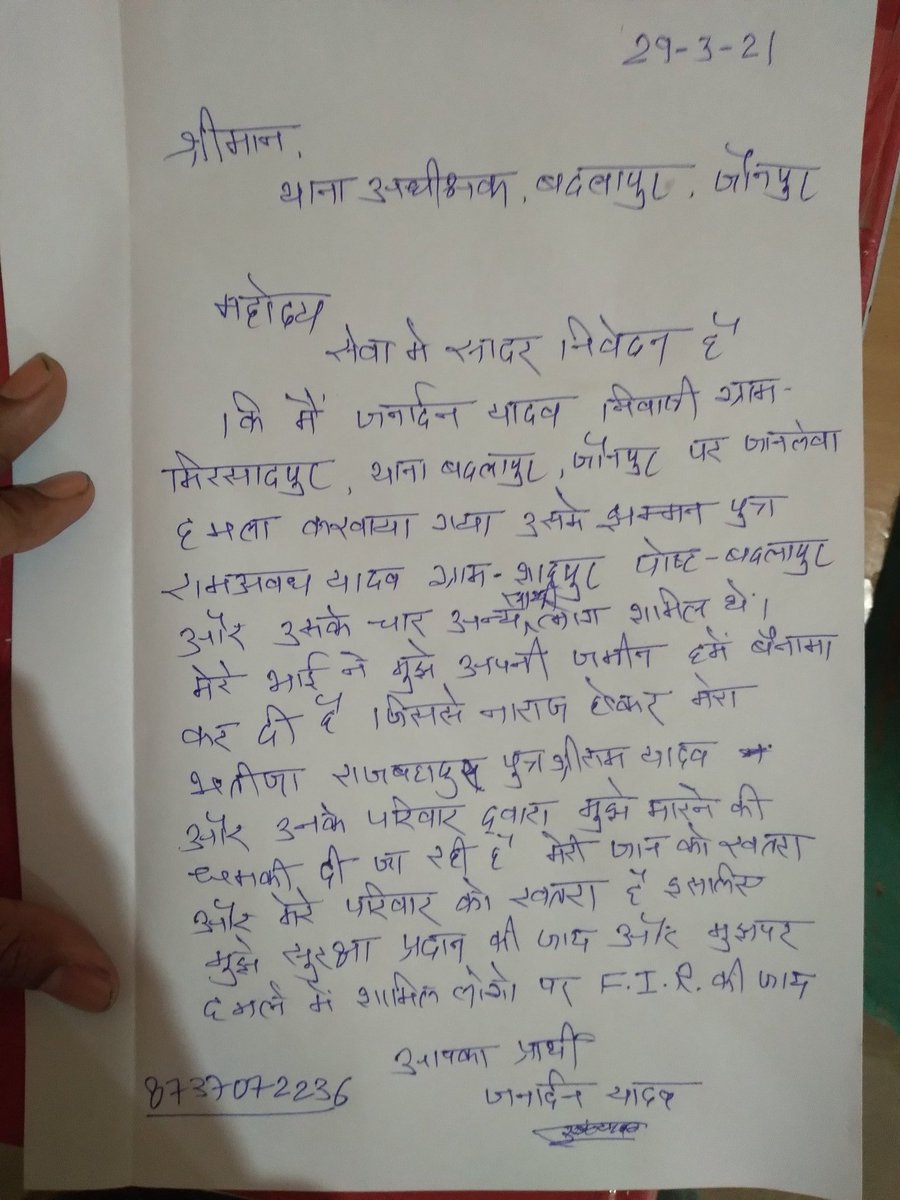 29-3-21
श्रीमान,
थाना अधीक्षक, बदलापुर, जौनपुर
महोदय
सेवा मे सादर निवेदन है
कि मैं जनार्दन यादव निवासी ग्राम-
मिरसादपुर, थाना बदलापुर, जौनपुर पर जानलेवा
हमला करवाया गया उसमे झम्मन पुत्र
रामअवध यादव ग्राम-शाहपुर पोष्ट-बदलापुर
और उसके चार अन्य साथी लोग शामिल थे।
मेरे भाई ने मुझे अपनी जमीन हमें बैनामा
कर दी है जिससे नाराज होकर मेरा
भतीजा राजबहादुर पुत्र श्रीराम यादव
और उनके परिवार द्वारा मुझे मारने की
धमकी दी जा रही है मेरी जान को खतरा
और मेरे परिवार को खतरा है इसलिए
मुझे सुरक्षा प्रदान की जाय और मुझपर
हमले में शामिल लोगो पर F.I.R. की जाय
आपका प्रार्थी
जनार्दन यादव
8737072236